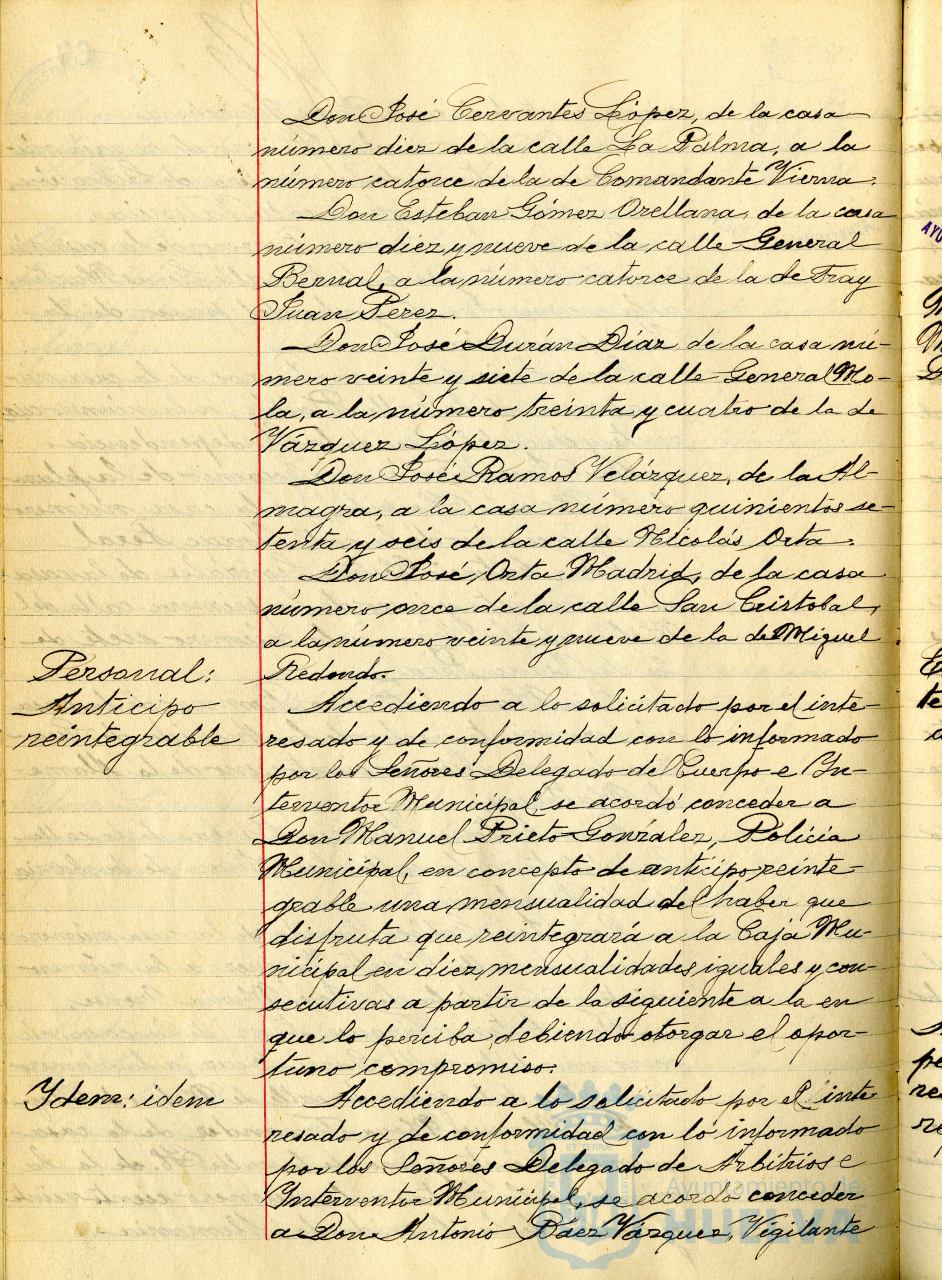 Don José Cervantes López, de la casa
número diez de la calle La Palma, a la
número catorce de la de Comandante Vierna.
Don Esteban Gómez Orellana, de la casa
número diez y nueve de la calle General
Bernal, a la número catorce de la de Fray
Juan Perez.
Don José Durán Díaz de la casa nú-
mero veinte y siete de la calle General Mo-
la, a la número treinta y cuatro de la de
Vázquez López.
Don José Ramos Velázquez, de la Al-
magra, a la casa número quinientos se-
tenta y seis de la calle Nicolás Orta.
Don José, Orta Madrid, de la casa
número once de la calle San Cristobal,
a la número veinte y nueve de la de Miguel
Redondo.
Personal:
Anticipo
reintegrable
Accediendo a lo solicitado por el inte-
resado y de conformidad con lo informado
por los Señores Delegado del Cuerpo e In-
terventor Municipal, se acordó conceder a
Don Manuel Prieto González, Policía
Municipal, en concepto de anticipo reinte-
grable una mensualidad del haber que
disfruta que reintegrará a la Caja Mu-
nicipal en diez mensualidades iguales y con-
secutivas a partir de la siguiente a la en
que lo perciba, debiendo otorgar el opor-
tuno compromiso.
Ydem: idem
Accediendo a lo solicitado por el inte-
resado y de conformidad con lo informado
por los Señores Delegado de Arbitrios e
Interventor Municipal, se acordó conceder
a Don Antonio Báez Vázquez, Vigilante
Ayuntamiento de
HUELVA